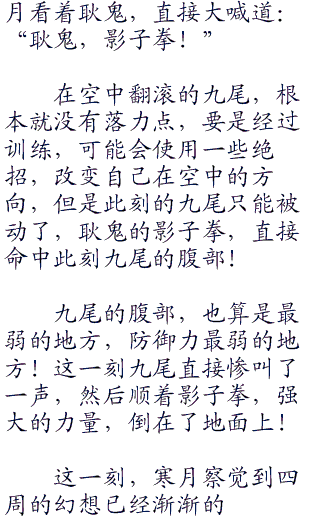 月看着耿鬼，直接大喊道：
“耿鬼，影子拳！”
在空中翻滚的九尾，根
本就没有落力点，要是经过
训练，可能会使用一些绝
招，改变自己在空中的方
向，但是此刻的九尾只能被
动了，耿鬼的影子拳，直接
命中此刻九尾的腹部！
九尾的腹部，也算是最
弱的地方，防御力最弱的地
方！这一刻九尾直接惨叫了
一声，然后顺着影子拳，强
大的力量，倒在了地面上！
这一刻，寒月察觉到四
周的幻想已经渐渐的